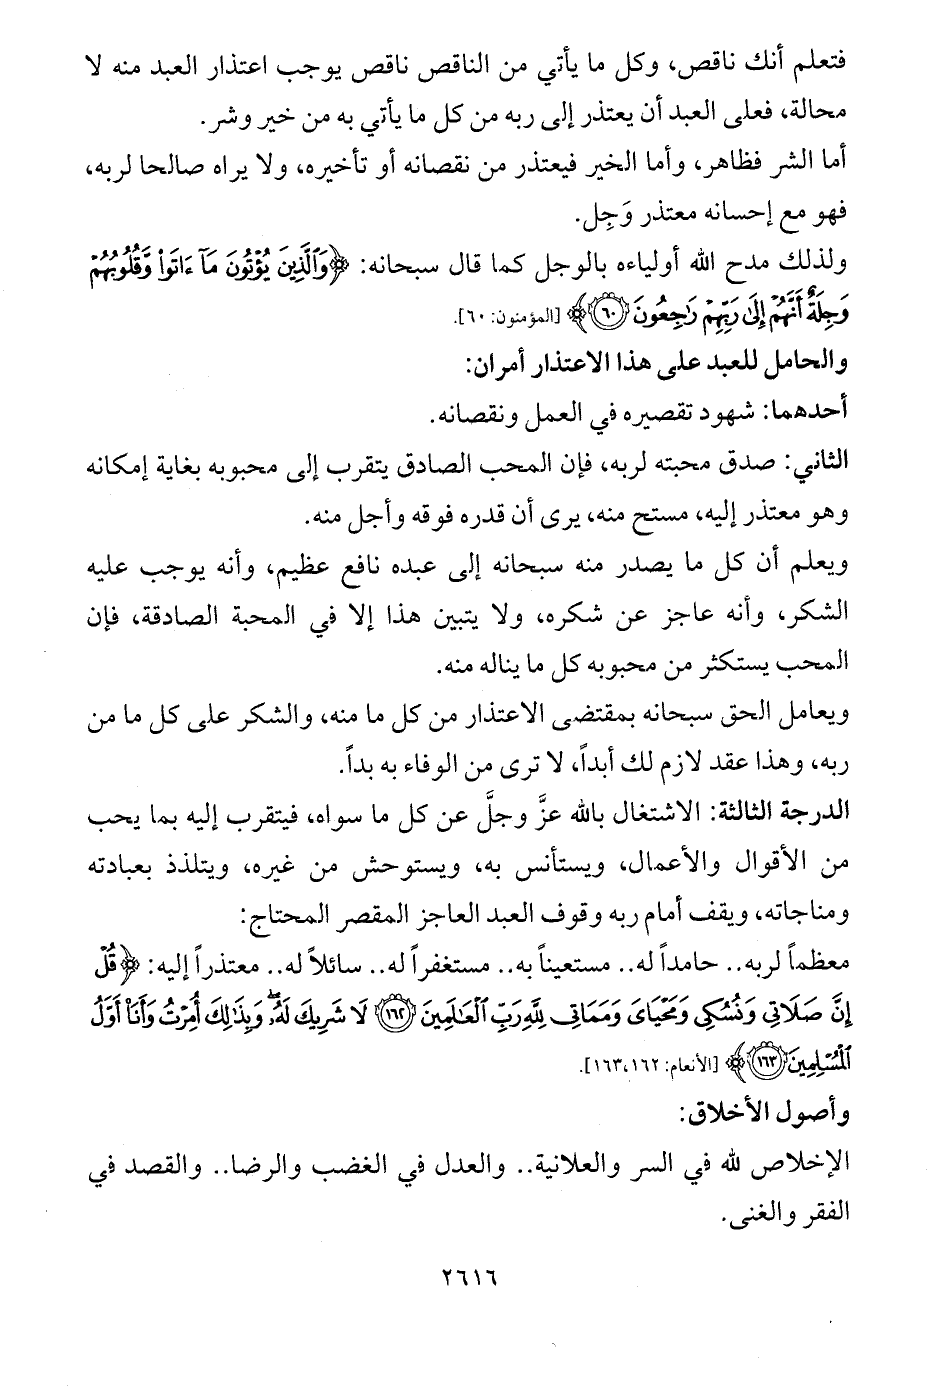 فتعلم أنك ناقص، وكل ما يأتي من الناقص ناقص يوجب اعتذار العبد منه لا
محالة، فعلى العبد أن يعتذر إلى ربه من كل ما يأتي به من خير وشر.
أما الشر فظاهر، وأما الخير فيعتذر من نقصانه أو تأخيره، ولا يراه صالحا لربه،
فهو مع إحسانه معتذر وَجِل.
ولذلك مدح الله أولياءه بالوجل كما قال سبحانه: ﴿وَٱلَّذِينَ يُؤۡتُونَ مَآ ءَاتَواْ وَّقُلُوبُهُمۡ
وَجِلَةٌ أَنَّهُمۡ إِلَىٰ رَبِّهِمۡ رَٰجِعُونَ ٦٠﴾ [المؤمنون: ٦٠].
والحامل للعبد على هذا الاعتذار أمران:
أحدهما: شهود تقصيره في العمل ونقصانه.
الثاني: صدق محبته لربه، فإن المحب الصادق يتقرب إلى محبوبه بغاية إمكانه
وهو معتذر إليه، مستح منه، يرى أن قدره فوقه وأجل منه.
ويعلم أن كل ما يصدر منه سبحانه إلى عبده نافع عظيم، وأنه يوجب عليه
الشكر، وأنه عاجز عن شكره، ولا يتبين هذا إلا في المحبة الصادقة، فإن
المحب يستكثر من محبوبه كل ما يناله منه.
ويعامل الحق سبحانه بمقتضى الاعتذار من كل ما منه، والشكر على كل ما من
ربه، وهذا عقد لازم لك أبداً، لا ترى من الوفاء به بداً.
الدرجة الثالثة: الاشتغال بالله عزَّ وجلَّ عن كل ما سواه، فيتقرب إليه بما يحب
من الأقوال والأعمال، ويستأنس به، ويستوحش من غيره، ويتلذذ بعبادته
ومناجاته، ويقف أمام ربه وقوف العبد العاجز المقصر المحتاج:
معظماً لربه.. حامداً له.. مستعيناً به.. مستغفراً له.. سائلاً له.. معتذراً إليه: ﴿قُلۡ
إِنَّ صَلَاتِي وَنُسُكِي وَمَحۡيَايَ وَمَمَاتِي لِلَّهِ رَبِّ ٱلۡعَٰلَمِينَ ١٦٢ لَا شَرِيكَ لَهُۥۖ وَبِذَٰلِكَ أُمِرۡتُ وَأَنَا۠ أَوَّلُ
ٱلۡمُسۡلِمِينَ ١٦٣﴾ [الأنعام: ١٦٢،١٦٣].
وأصول الأخلاق:
الإخلاص لله في السر والعلانية.. والعدل في الغضب والرضا.. والقصد في
الفقر والغنى.
٢٦١٦